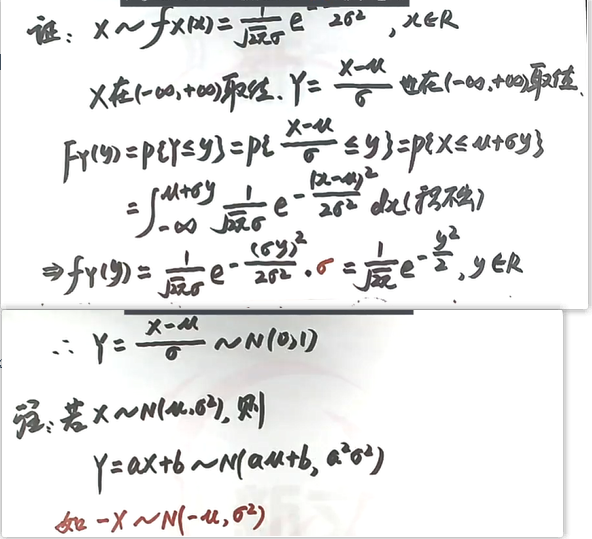 证: X~fX(x)=1/(√2π σ) e^- 2σ², x∈R
X在(-∞,+∞)取值. Y=(X-μ)/σ 也在(-∞,+∞)取值.
FY(y)=P{Y≤y}=P{(X-μ)/σ≤y}=P{X≤μ+σy}
=∫_{-∞}^{μ+σy} 1/(√2π σ) e^{-(x-μ)²/2σ²} dx(积不出)
⇒fY(y)=1/(√2π σ) e^{-(σy)²/2σ²}·σ=1/√2π e^{-y²/2}, y∈R
∴ Y=(X-μ)/σ ~N(0,1)
注:若X~N(μ,σ²),则
Y=aX+b~N(aμ+b, a²σ²)
如 -X~N(-μ,σ²)